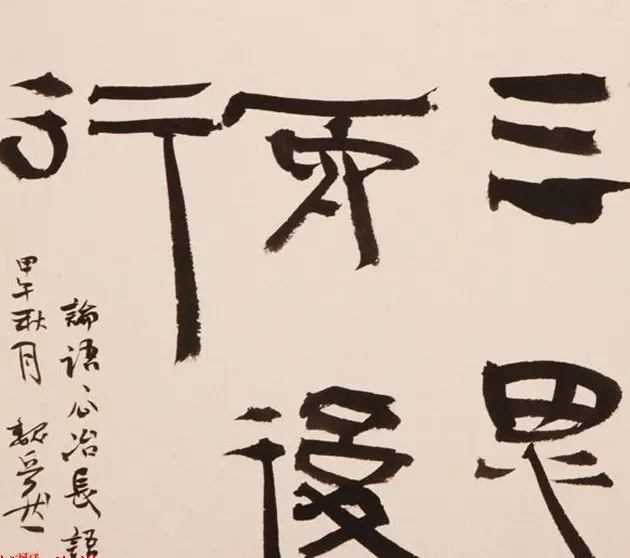 三思
而後
行
論語公冶長語
甲午秋月